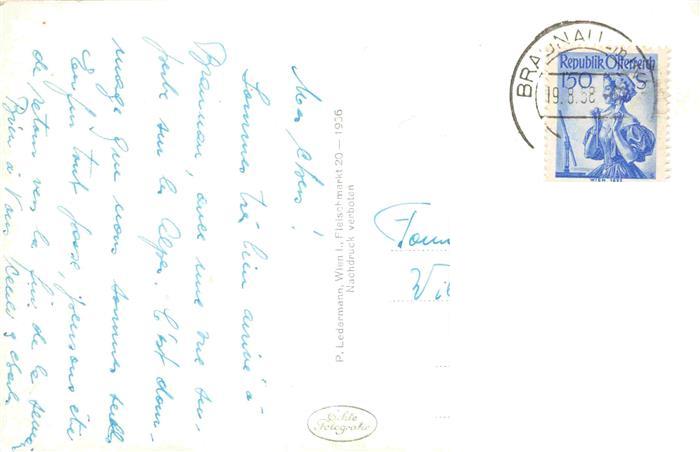 Mes chers!
Sommes très bien arrivé à
Braunau, avec une vue su-
perbe sur les Alpes. C'est dom-
mage que nous sommes seuls
Enfin tout passe, pensons être
de retour vers la fin de la semai.
Bien à vous
P. Ledermann, Wien I., Fleischmarkt 20 — 1936
Nachdruck verboten
Echte
Fotografie
BRAUNAU
19.8.58
Republik Österreich
150 S
WIEN
Fam
Wil